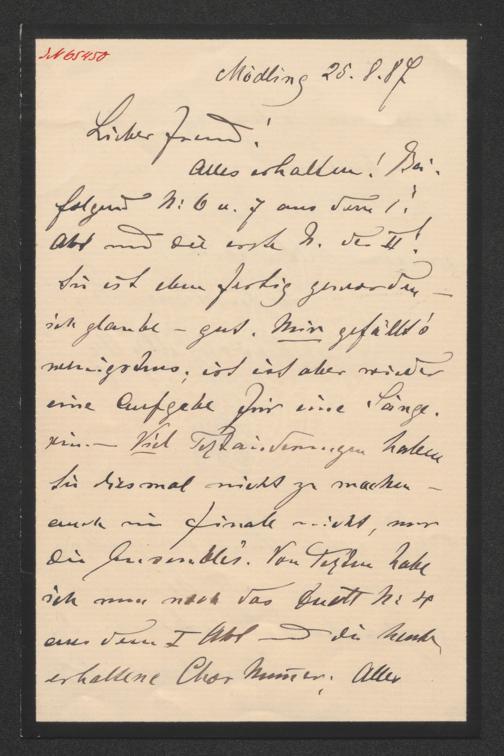 JN 65450
Mödling 25.8.87
Lieber Freund!
Alles erhalten! Bei-
folgend N: 6 u. 7 aus dem I.
Akt und die erste N. des II!
Sie ist eben fertig geworden –
ich glaube – gut. Mir gefällt's
wenigstens; es ist aber wieder
eine Aufgabe für eine Sänge-
rin. – Viel Textänderungen haben
Sie diesmal nicht zu machen –
auch im Finale nicht, nur
die Ensembles. Von Texten habe
ich nun noch das Duett N: 4
aus dem I Akt und die heute
erhaltene Chor Numer. Alles